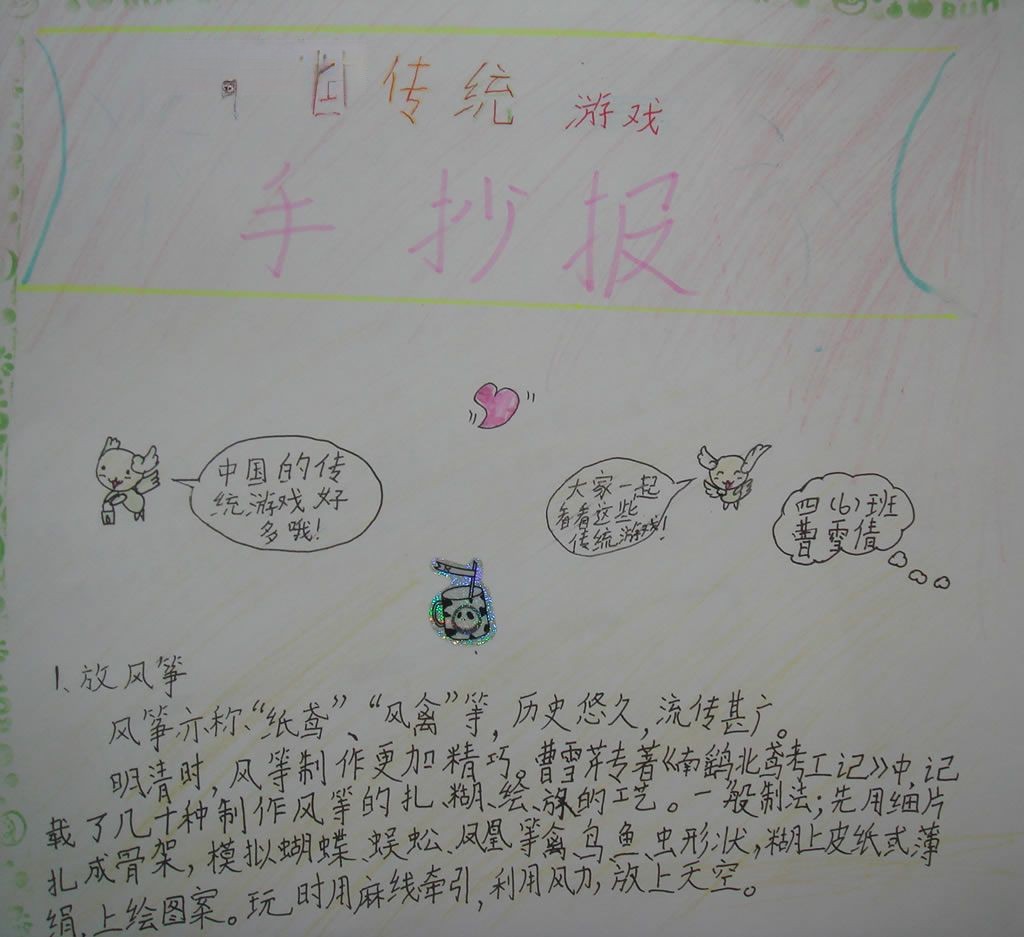 国传统游戏
手抄报
中国的传
统游戏好
多哦!
大家一起
看看这些
传统游戏!
四(6)班
曹雪倩
1、放风筝
风筝亦称“纸鸢”、“风禽”等,历史悠久,流传甚广。
明清时,风筝制作更加精巧。曹雪芹专著《南鹞北鸢考工记》中,记
载了几十种制作风筝的扎、糊、绘、放的工艺。一般制法;先用细片
扎成骨架,模拟蝴蝶、蜈蚣、凤凰等禽、鸟、鱼、虫形状,糊上皮纸或薄
绢,上绘图案。玩时用麻线牵引,利用风力,放上天空。